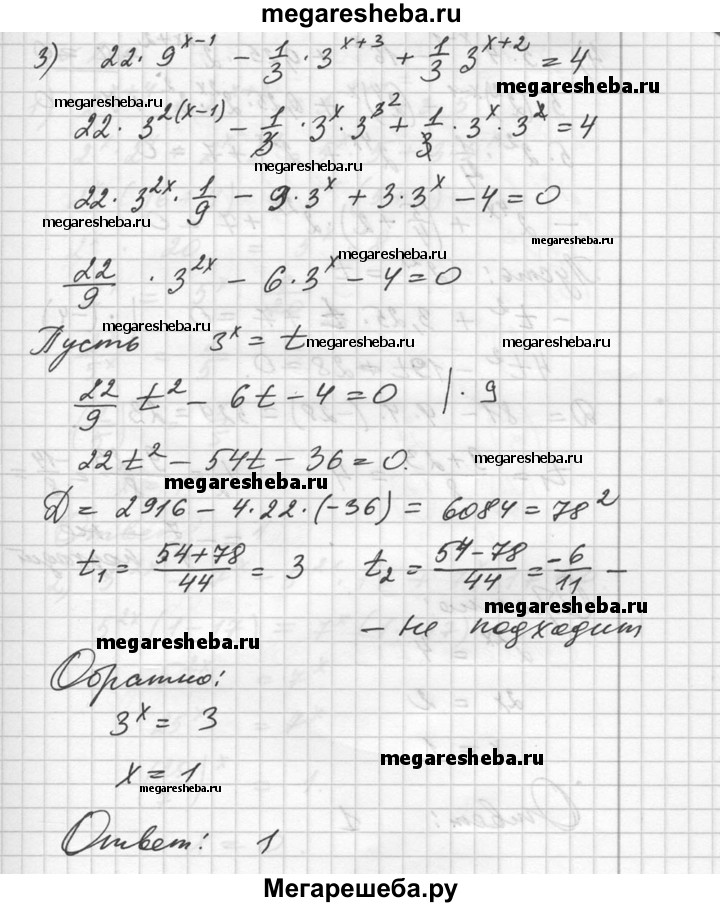 megaresheba.ru
3) 22·9^(x-1) - 1/3·3^(x+3) + 1/3 3^(x+2) = 4
megaresheba.ru
megaresheba.ru
22·3^(2(x-1)) - 1/3·3^x·3^3^2 + 1/3·3^x·3^2 = 4
megaresheba.ru
22·3^(2x)·1/9 - 9·3^x + 3·3^x - 4 = 0
megaresheba.ru
megaresheba.ru
22/9·3^(2x) - 6·3^x - 4 = 0
megaresheba.ru
Пусть 3^x = t
megaresheba.ru
22/9 t^2 - 6t - 4 = 0 |·9
22t^2 - 54t - 36 = 0.
megaresheba.ru
D = 2916 - 4·22·(-36) = 6084 = 78^2
t1 = (54+78)/44 = 3 t2 = (54-78)/44 = -6/11 -
megaresheba.ru
- не подходит
megaresheba.ru
Обратно:
3^x = 3
megaresheba.ru
x = 1
megaresheba.ru
Ответ: 1
Мегарешеба.ру